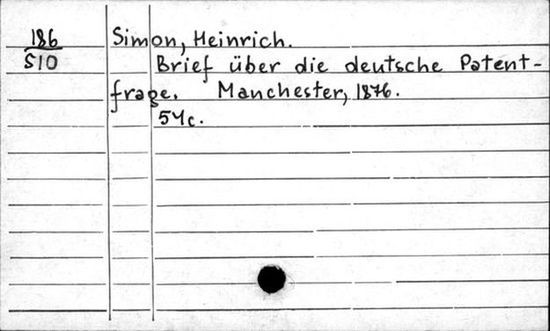 186
S10
Simon, Heinrich.
Brief über die deutsche Patent-
frage. Manchester, 1876.
54c.